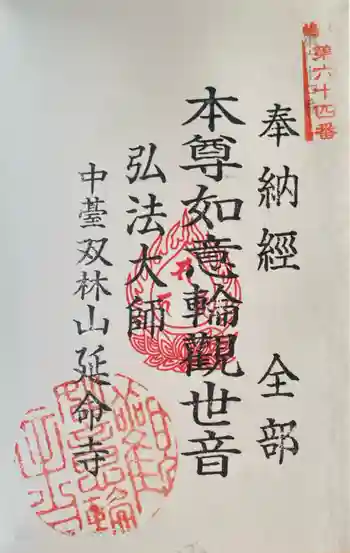 第六十四番
奉納經 全部
本尊如意輪觀世音
弘法大師
中臺双林山延命寺